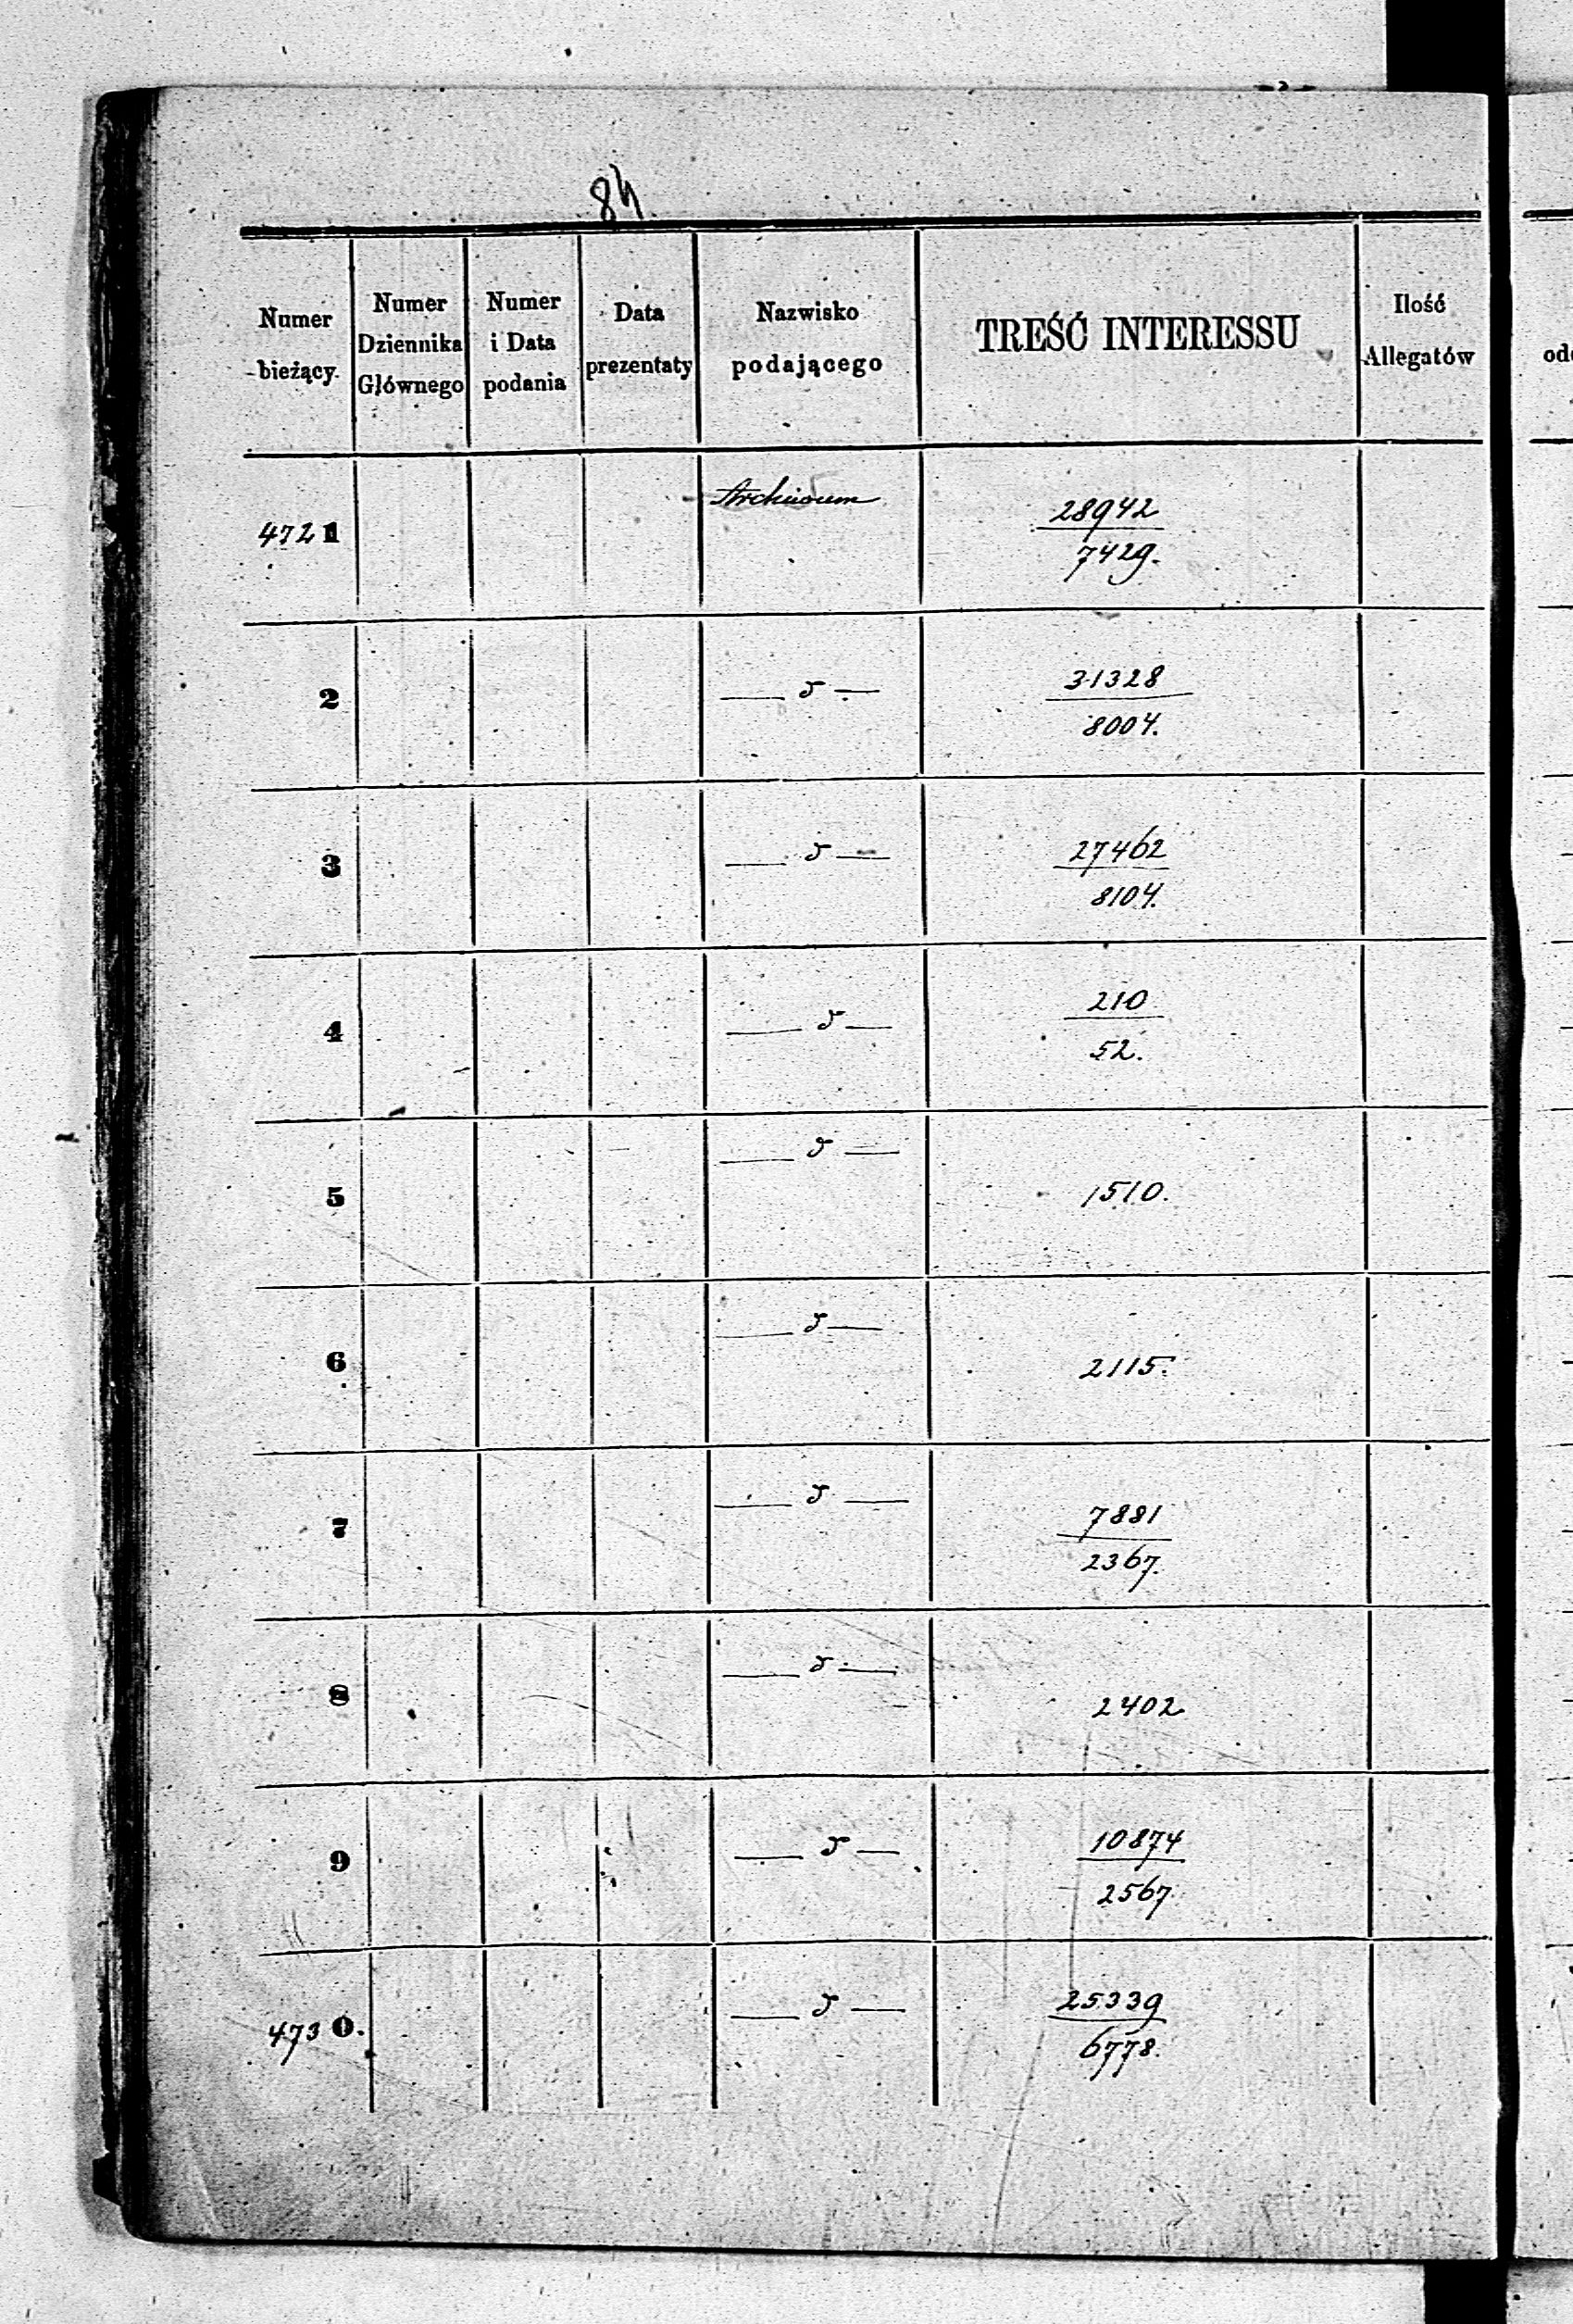 84
Numer bieżący. Numer Dziennika Głównego Numer i Data podania Data prezentaty Nazwisko podającego TREŚĆ INTERESSU Ilość Allegatów
4721 Archiwum 28942
7429.
2 — d — 31328
8004.
3 — d — 27462
8104.
4 — d — 210
52.
5 — d — 1510.
6 — d — 2115.
7 — d — 7881
2367.
8 — d — 2402
9 — d — 10874
2567
4730. — d — 25339
6778.